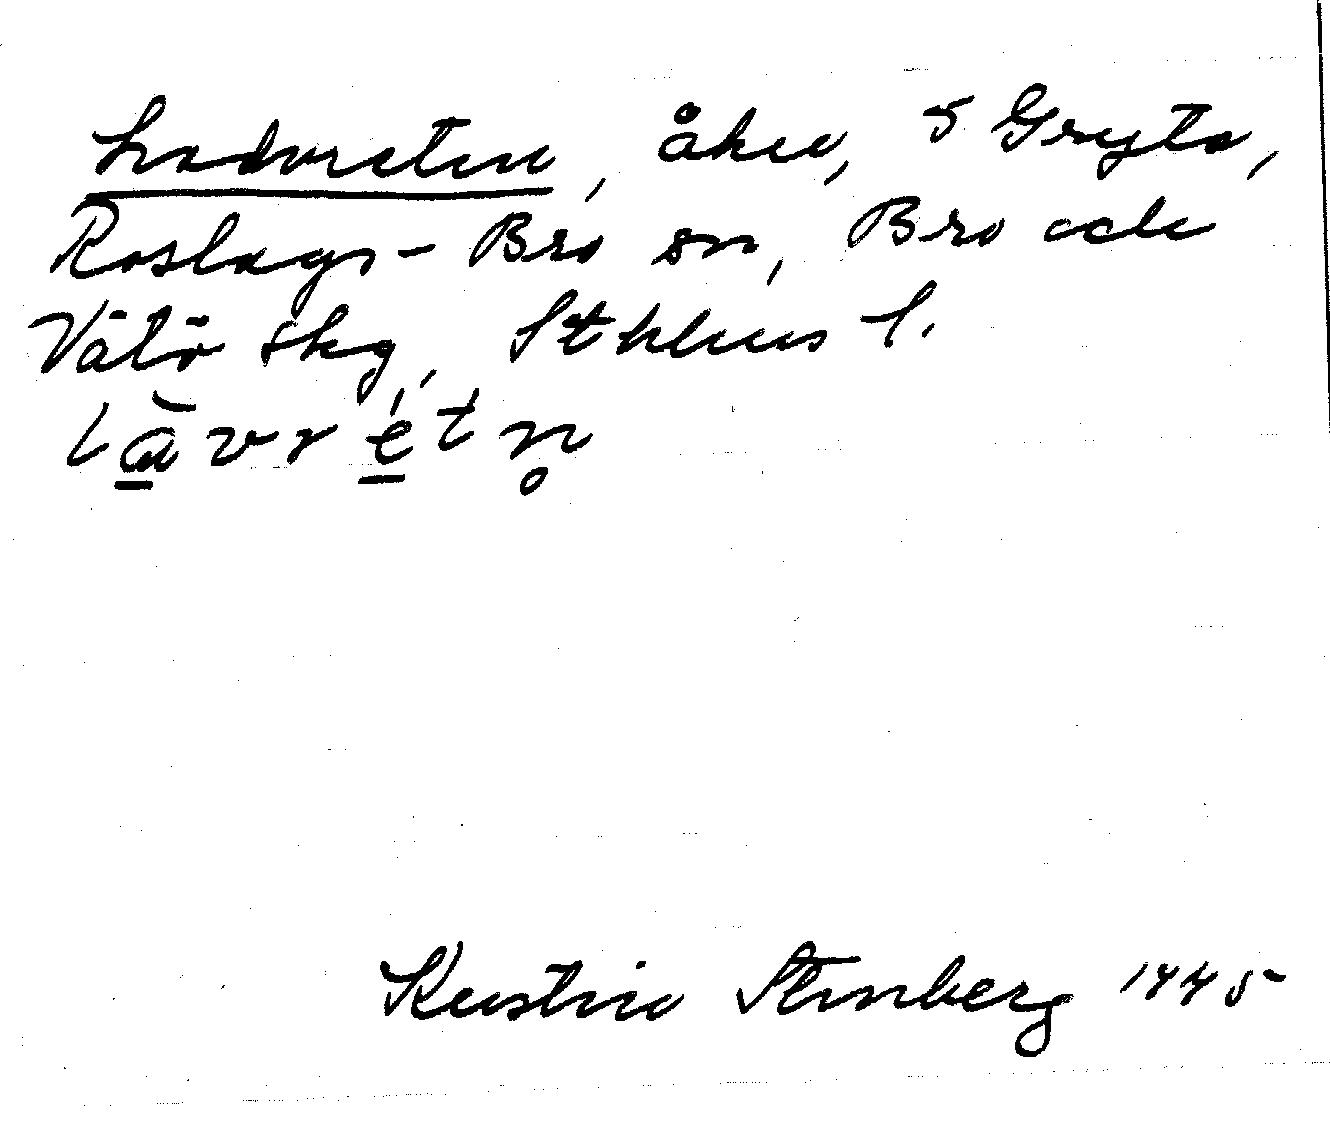 Ladvreten, åker, 5 Gryta,
Roslags-Bro sn, Bro och
Vätö skg, Sthlms l.
làvrétn̥
Kerstin Stenberg 1945